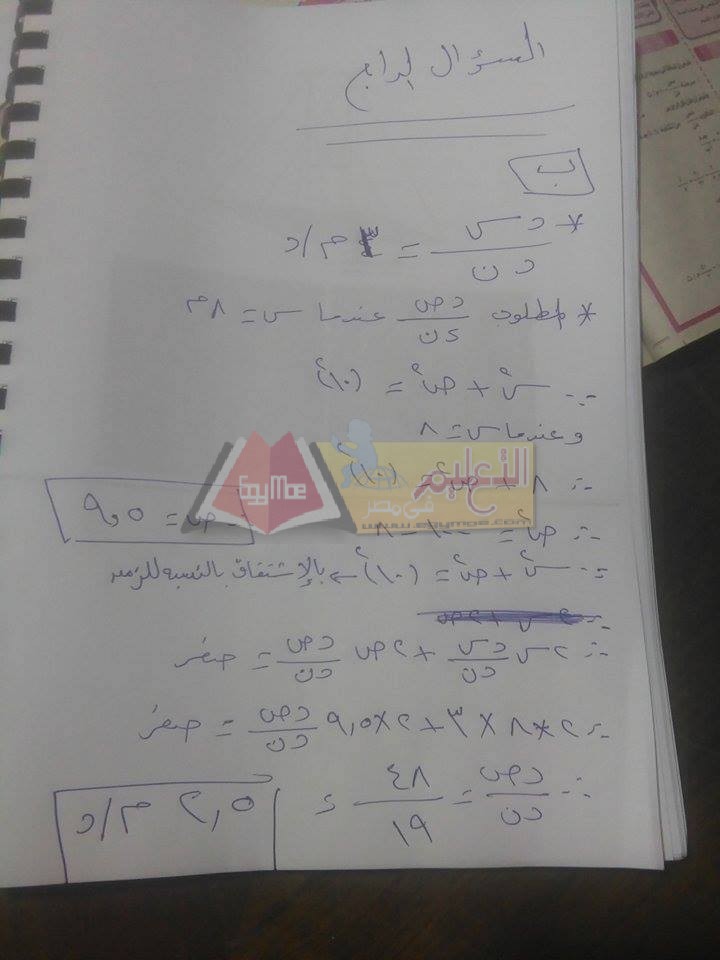 السؤال الرابع
ب
* دس/دن = ٣ م/د
* المطلوب دص/دن عندما س = ٨م
∵ س٢ + ص٢ = (١٠)٢
وعندما س = ٨
∴ ٨ + ص٢ = (١٠)٢
∴ ص٢ = ١٠٠ - ٨
∴ ص = ٩,٥
∵ س٢ + ص٢ = (١٠)٢ ← بالإشتقاق بالنسبه للزمن
∴ ٢س دس/دن + ٢ص دص/دن = صفر
∴ ٢×٨×٣ + ٢×٩,٥ دص/دن = صفر
∴ دص/دن = ٤٨/١٩ = ٢,٥ م/د
EgyMoe
التعليم
فى مصر
www.egymoe.com